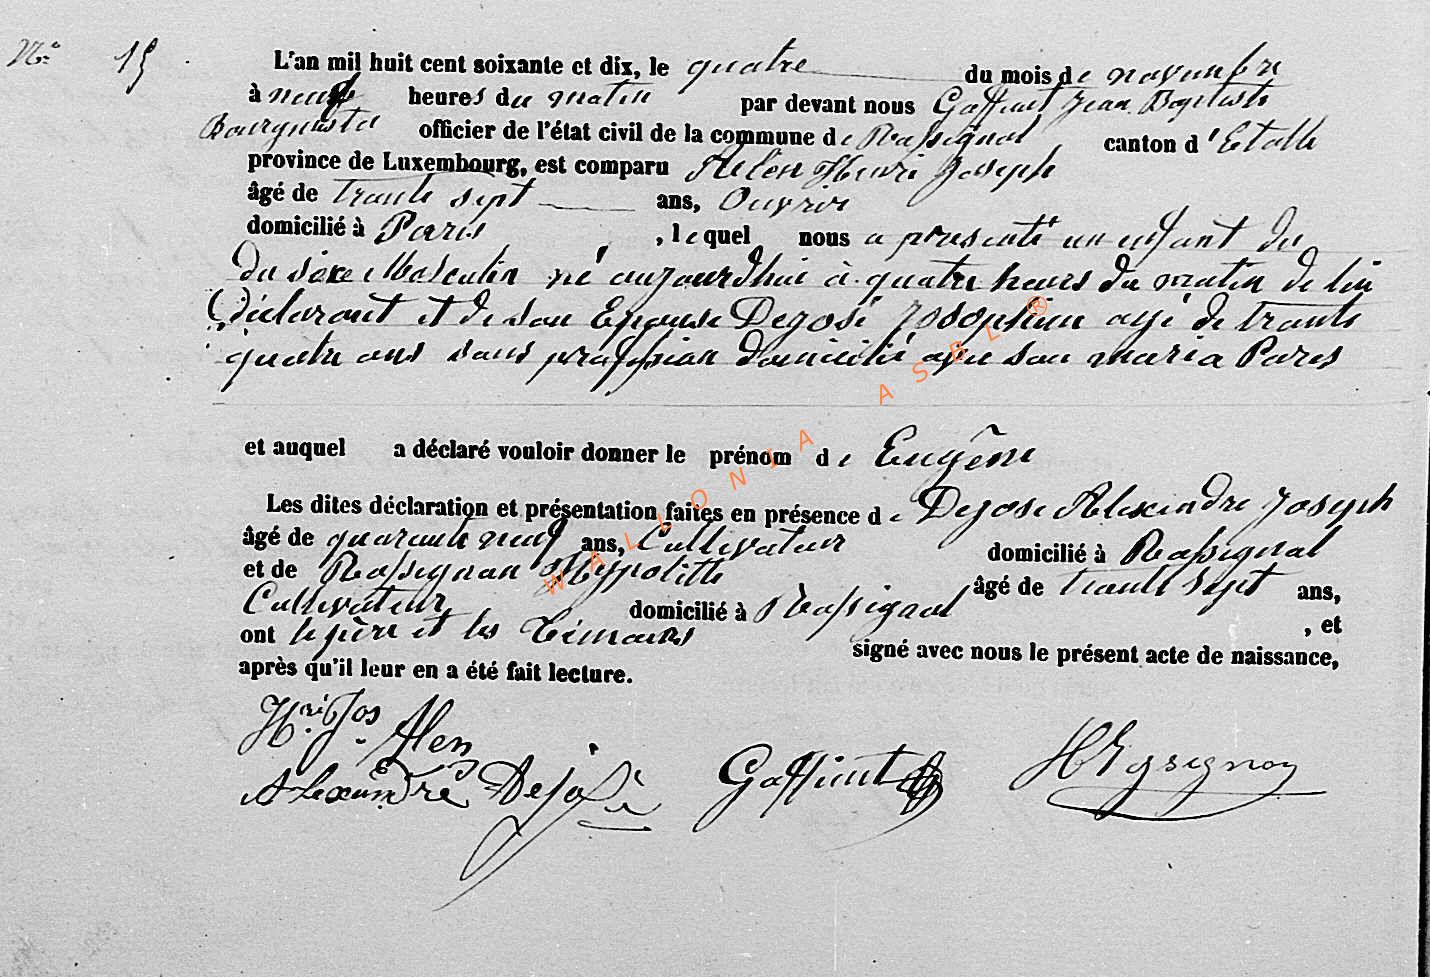 N° 15
L'an mil huit cent soixante et dix, le quatre du mois de novembre
à neuf heures du matin par devant nous Goffinet Jean Baptiste
Bourgmestre officier de l'état civil de la commune de Rossignol canton d'Etalle
province de Luxembourg, est comparu Alen Henri Joseph
âgé de trante sept ans, Ouvrier
domicilié à Paris, lequel nous a presenté un enfant du
du sexe Masculin né aujourdhui à quatre heurs du matin de lui
Déclarant et de son Epouse Dejosé Josophine agé de trante
quatre ans sans profession domicilié avec son mari a Paris
et auquel a déclaré vouloir donner le prénom de Eugêne
Les dites déclaration et présentation faites en présence de Dejose Alexandre Joseph
âgé de quarante neuf ans, Cultivateur domicilié à Rossignol
et de Rossignon Hyppolitte âgé de trante sept ans,
Cultivateur domicilié à Rossignol, et
ont le père et les témoins signé avec nous le présent acte de naissance,
après qu'il leur en a été fait lecture.
Hri Jos Alen
Alexandre Dejosé Goffinet HRossignon
WALLONIA ASBL ®